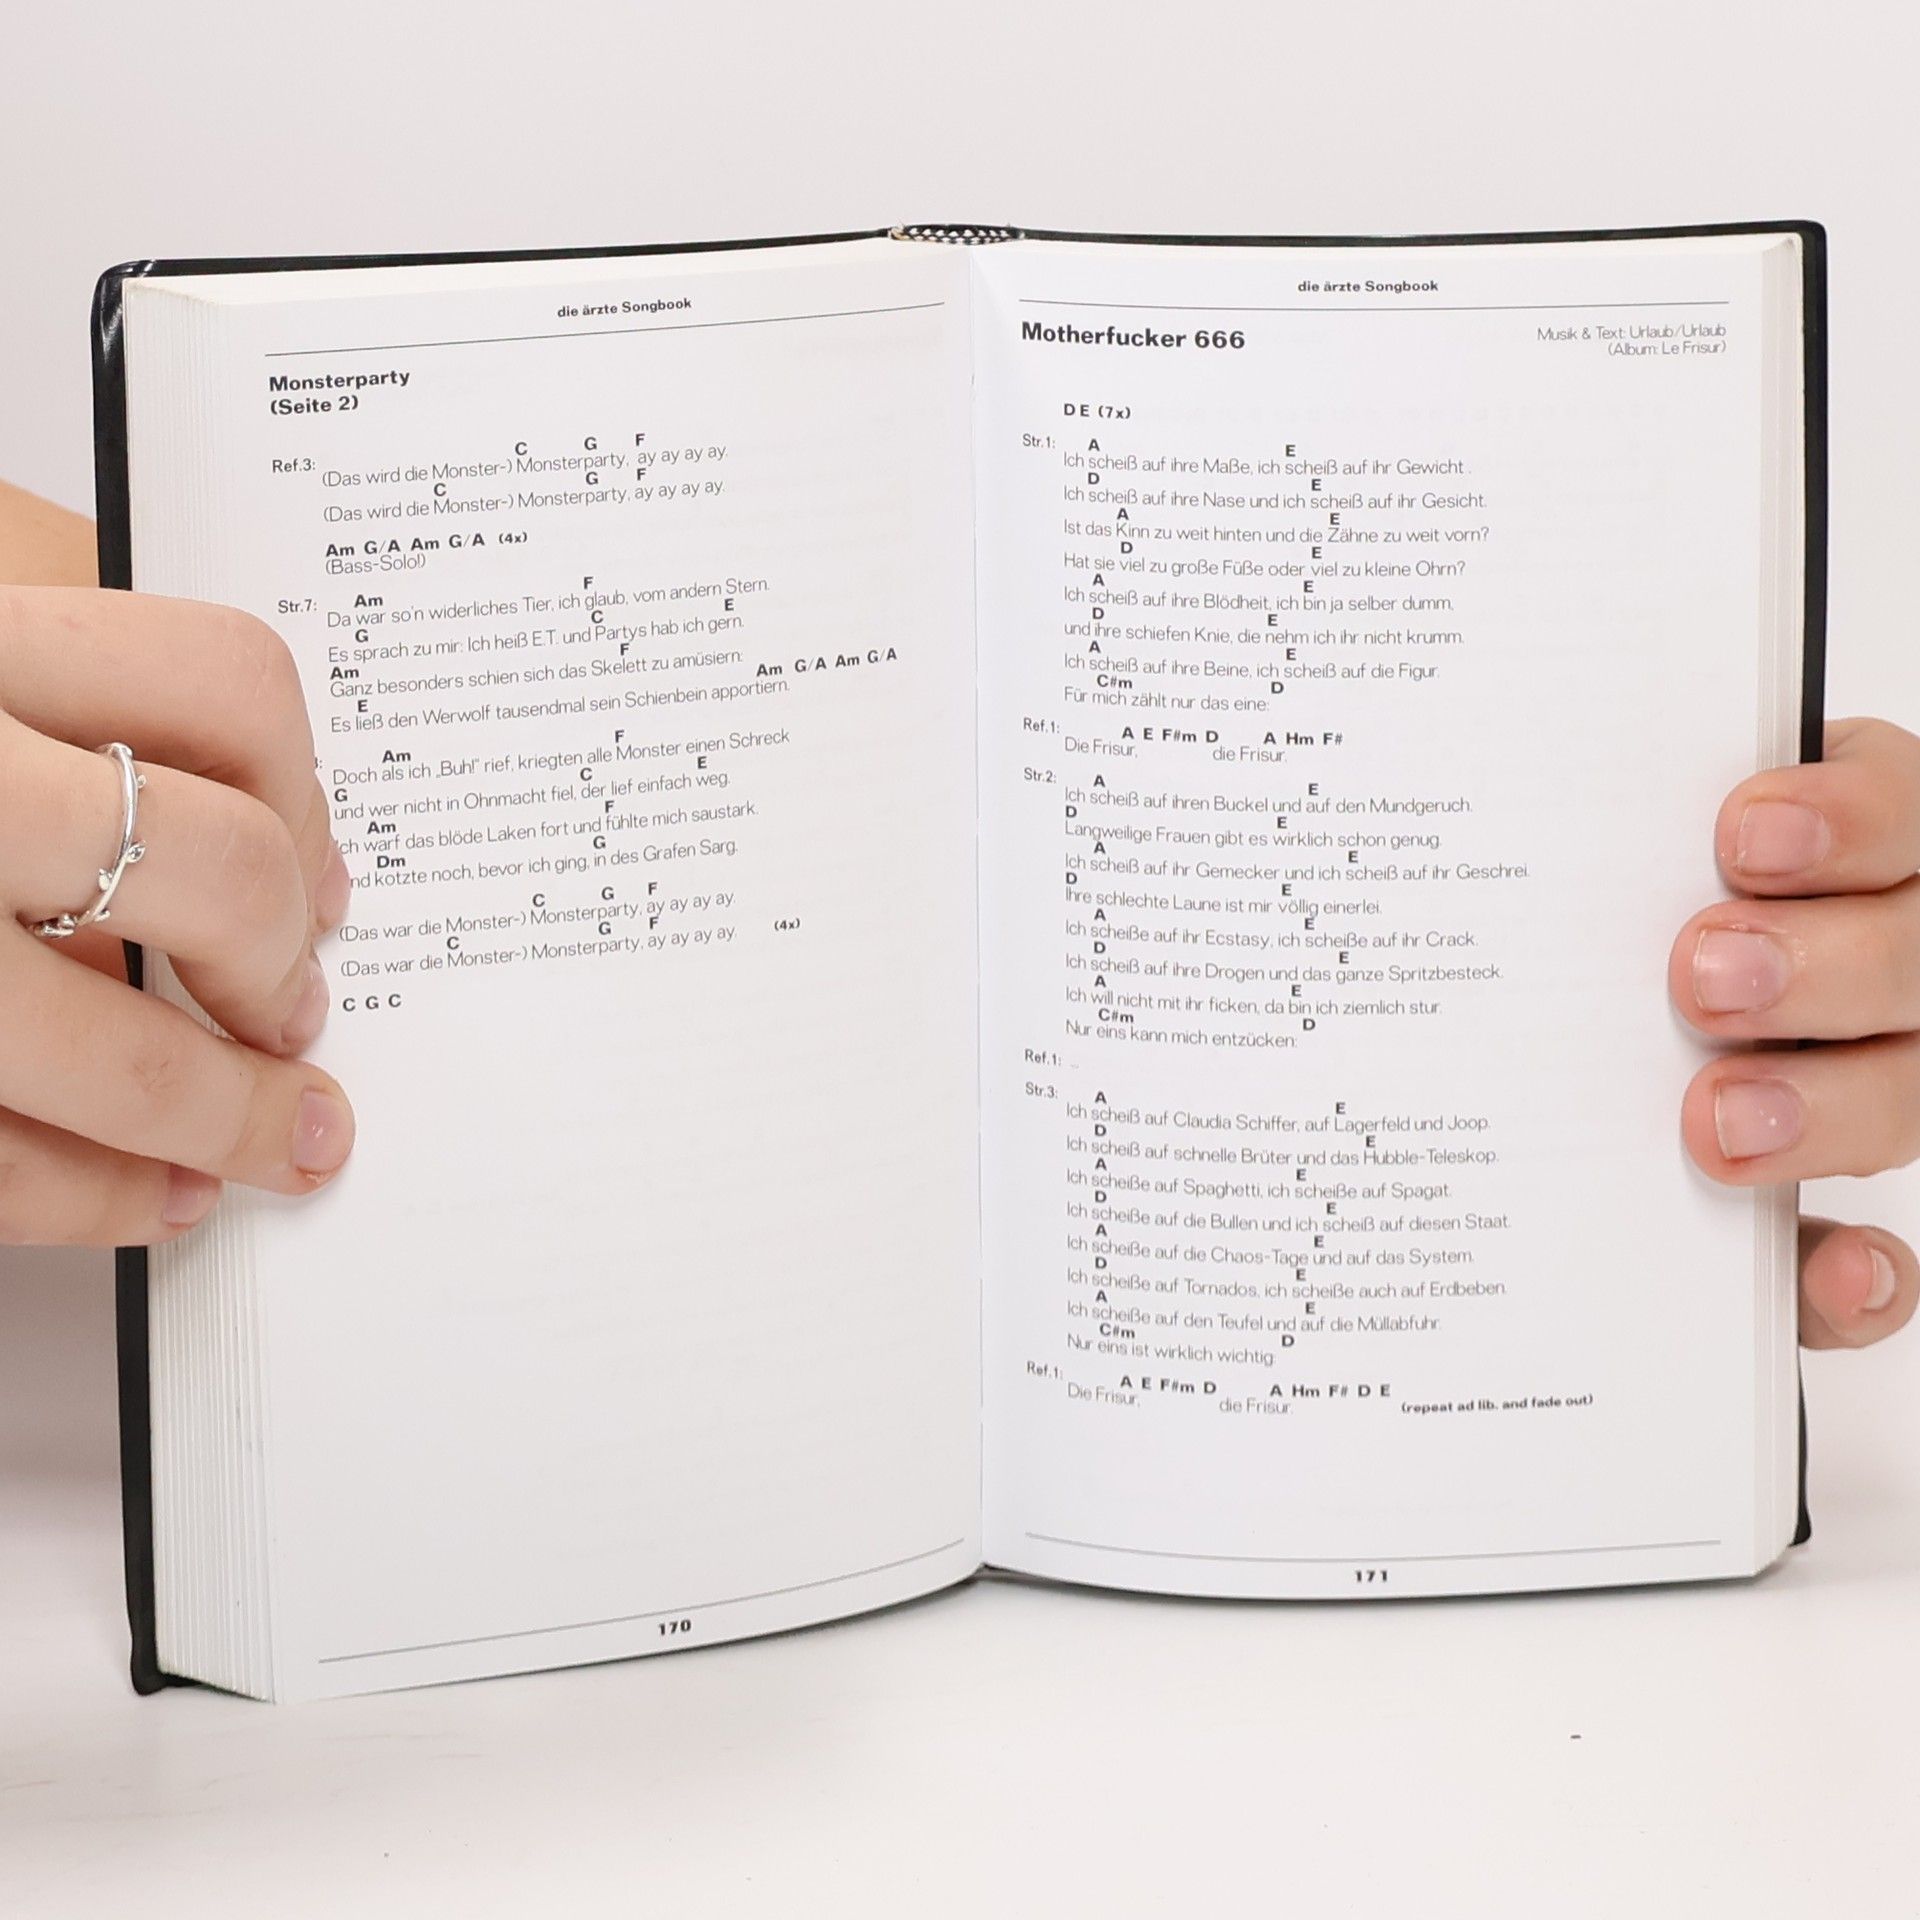 die ärzte Songbook
Monsterparty
(Seite 2)
C G F
Ref.3: (Das wird die Monster-) Monsterparty, ay ay ay ay.
C G F
(Das wird die Monster-) Monsterparty, ay ay ay ay.
Am G/A Am G/A (4x)
(Bass-Solo!)
Am F
Str.7: Da war so'n widerliches Tier, ich glaub, vom andern Stern.
G C E
Es sprach zu mir: Ich heiß E.T. und Partys hab ich gern.
Am F
Ganz besonders schien sich das Skelett zu amüsiern:
E Am G/A Am G/A
Es ließ den Werwolf tausendmal sein Schienbein apportiern.
Am F
Doch als ich „Buh!" rief, kriegten alle Monster einen Schreck
G C E
und wer nicht in Ohnmacht fiel, der lief einfach weg.
Am F
ch warf das blöde Laken fort und fühlte mich saustark.
Dm G
nd kotzte noch, bevor ich ging, in des Grafen Sarg.
C G F
(Das war die Monster-) Monsterparty, ay ay ay ay.
C G F
(Das war die Monster-) Monsterparty, ay ay ay ay. (4x)
C G C
170
die ärzte Songbook
Motherfucker 666 Musik & Text: Urlaub/Urlaub
(Album: Le Frisur)
D E (7x)
A E
Str.1: Ich scheiß auf ihre Maße, ich scheiß auf ihr Gewicht .
D E
Ich scheiß auf ihre Nase und ich scheiß auf ihr Gesicht.
A E
Ist das Kinn zu weit hinten und die Zähne zu weit vorn?
D E
Hat sie viel zu große Füße oder viel zu kleine Ohrn?
A E
Ich scheiß auf ihre Blödheit, ich bin ja selber dumm,
D E
und ihre schiefen Knie, die nehm ich ihr nicht krumm.
A E
Ich scheiß auf ihre Beine, ich scheiß auf die Figur.
C#m D
Für mich zählt nur das eine:
A E F#m D A Hm F#
Ref.1: Die Frisur, die Frisur.
A E
Str.2: Ich scheiß auf ihren Buckel und auf den Mundgeruch.
D E
Langweilige Frauen gibt es wirklich schon genug.
A E
Ich scheiß auf ihr Gemecker und ich scheiß auf ihr Geschrei.
D E
Ihre schlechte Laune ist mir völlig einerlei.
A E
Ich scheiße auf ihr Ecstasy, ich scheiße auf ihr Crack.
D E
Ich scheiß auf ihre Drogen und das ganze Spritzbesteck.
A E
Ich will nicht mit ihr ficken, da bin ich ziemlich stur.
C#m D
Nur eins kann mich entzücken:
Ref.1: ...
A E
Str.3: Ich scheiß auf Claudia Schiffer, auf Lagerfeld und Joop.
D E
Ich scheiß auf schnelle Brüter und das Hubble-Teleskop.
A E
Ich scheiße auf Spaghetti, ich scheiße auf Spagat.
D E
Ich scheiße auf die Bullen und ich scheiß auf diesen Staat.
A E
Ich scheiße auf die Chaos-Tage und auf das System.
D E
Ich scheiße auf Tornados, ich scheiße auch auf Erdbeben.
A E
Ich scheiße auf den Teufel und auf die Müllabfuhr.
C#m D
Nur eins ist wirklich wichtig:
A E F#m D A Hm F# D E
Ref.1: Die Frisur, die Frisur. (repeat ad lib. and fade out)
171